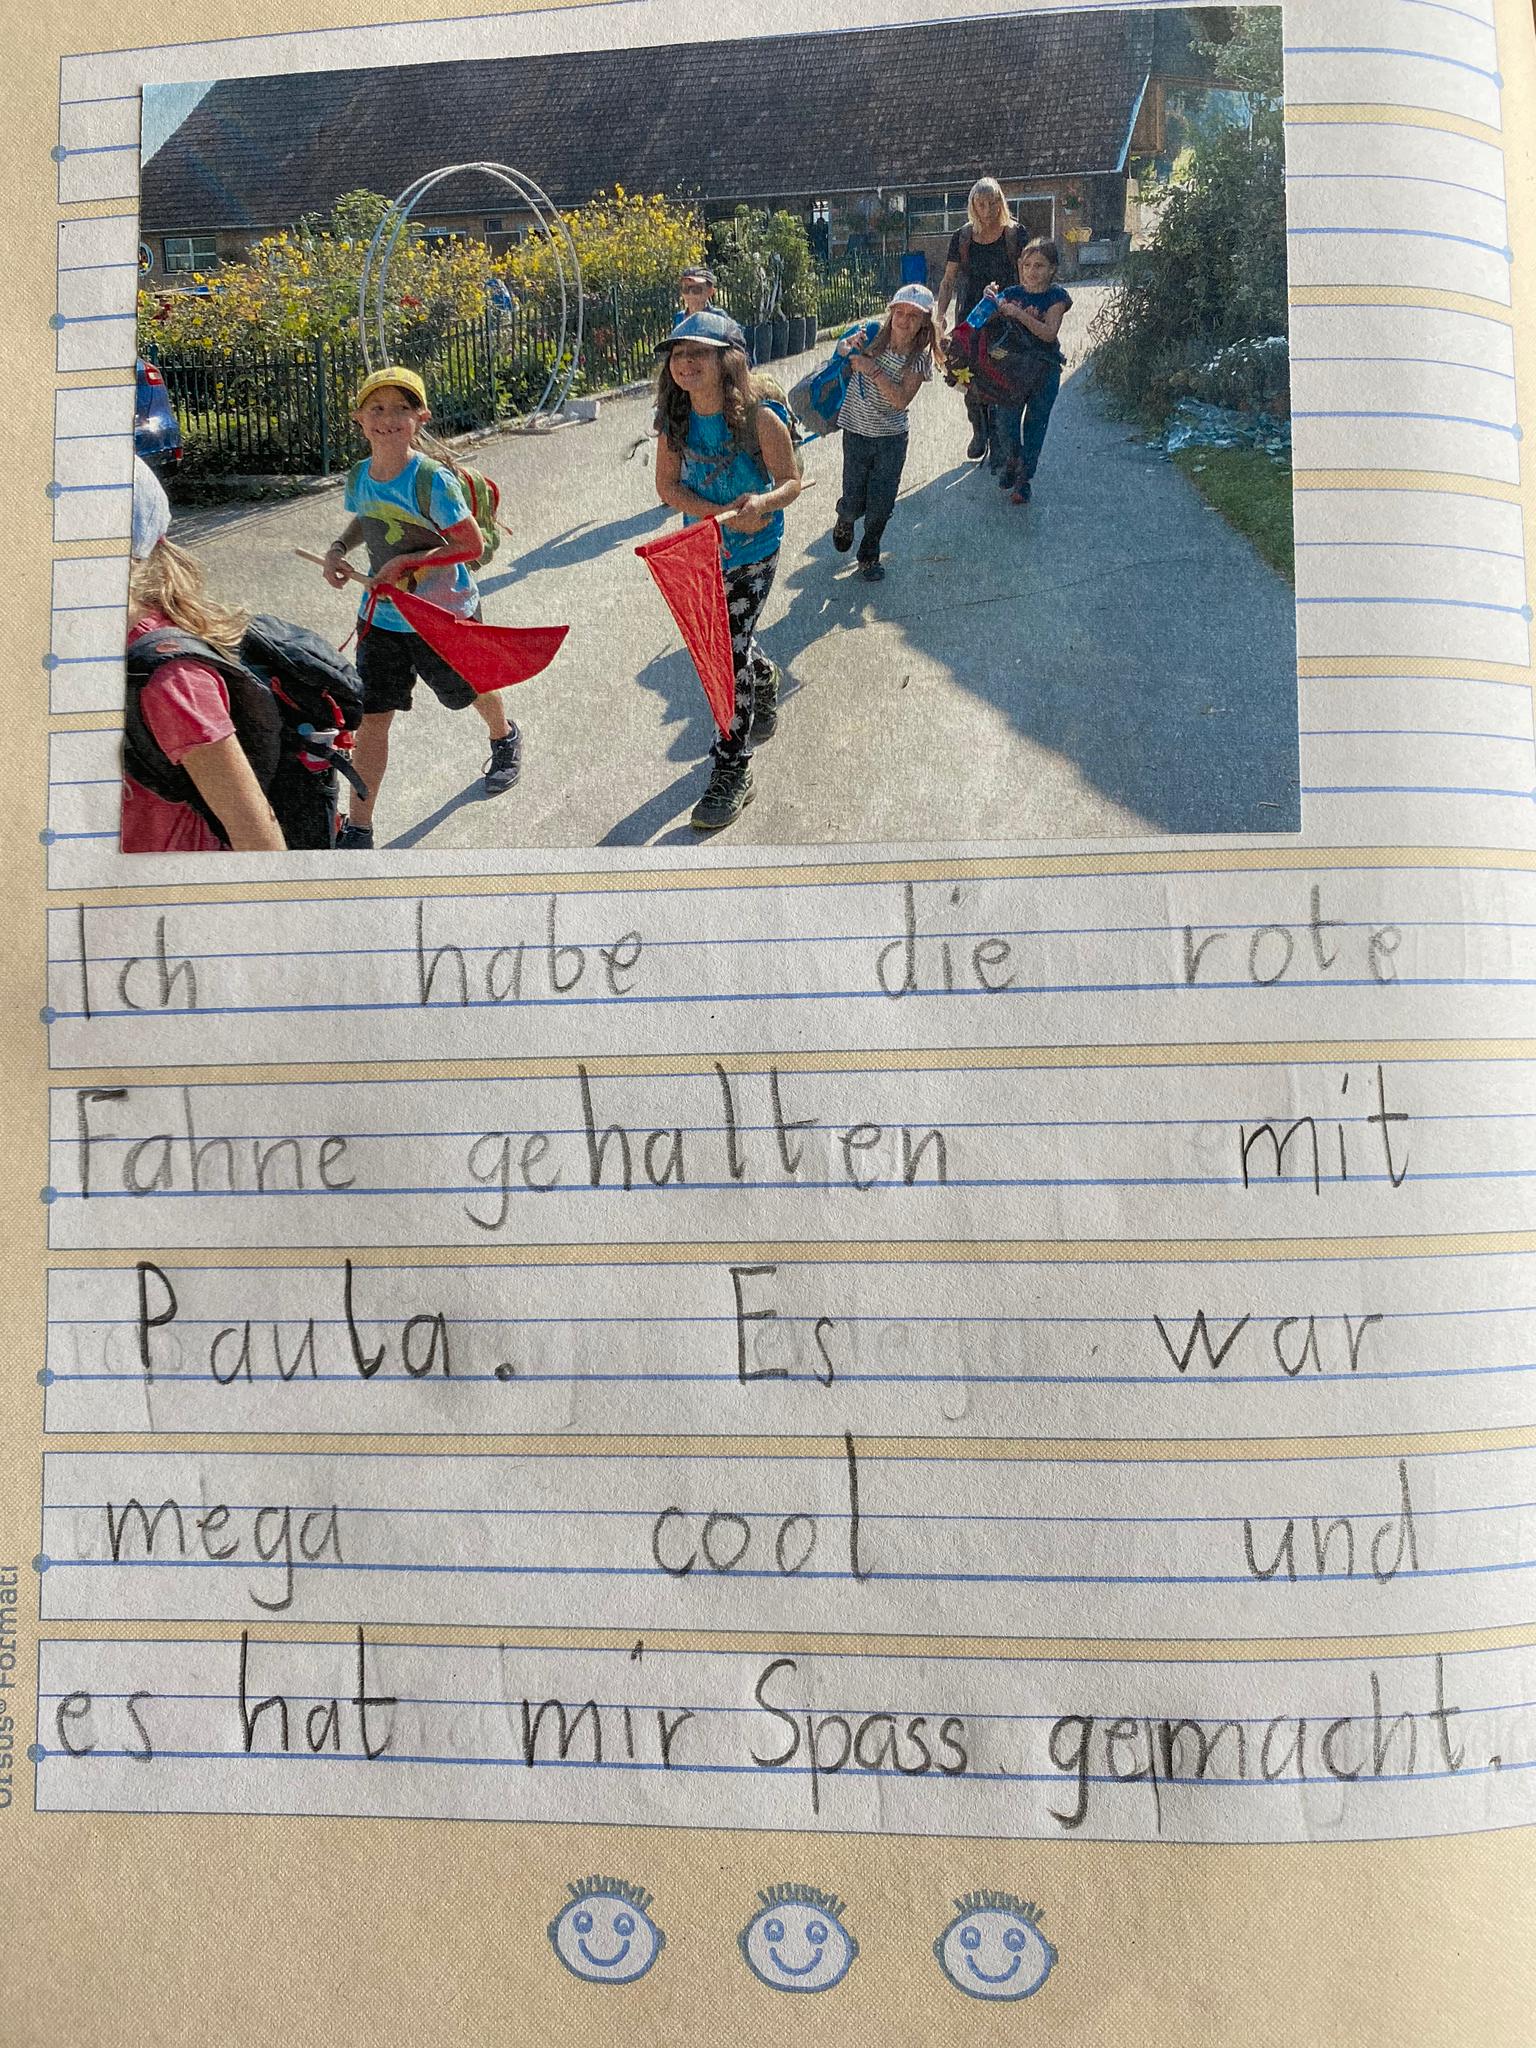 Ich habe die rote
Fahne gehalten mit
Paula. Es war
mega cool und
es hat mir Spass gemacht.
Ursus® Formati